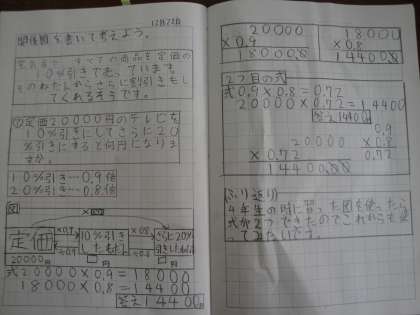 12月22日
関係図を書いて考えよう。
すべての商品を定価の
10%引きで売っています。
そのねだんからさらに割引きもし
てくれるそうです。
①定価20000円のテレビを
10%引きにしてさらに20
%引きにすると何円になりま
すか。
10%引き…0.9倍
20%引き…0.8倍
図
定価 ×0.9 10%引き ×0.8 さらに20%
20000円 □円 □円
式20000×0.9=18000
18000×0.8=14400
答え14400円
20000
×0.9
18000.0
18000
×0.8
14400.0
2つ目の式
式0.9×0.8=0.72
20000×0.72=14400
答え14400円
0.9
×0.8
0.72
20000
×0.72
14400.00
(ふり返り)
4年生の時に習った図を使ったら
式が2つできたのでこれからも使
ってみたいです。